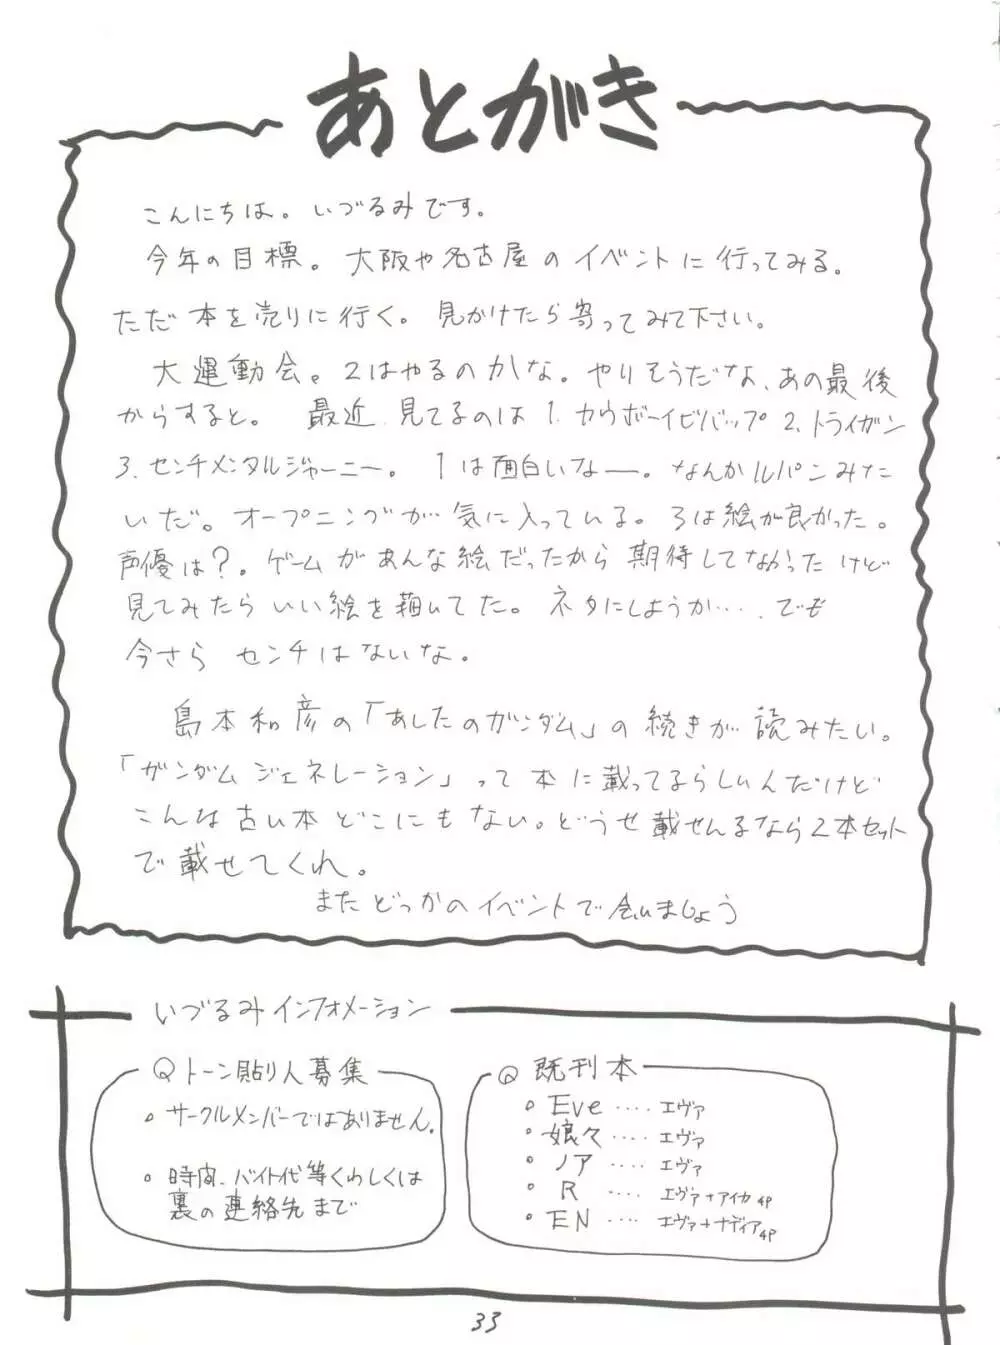 あとがき
こんにちは。いづるみです。
今年の目標。大阪や名古屋のイベントに行ってみる。
ただ本を売りに行く。見かけたら寄ってみて下さい。
大運動会。2はやるのかな。やりそうだな、あの最後
からすると。最近見てるのは1.カウボーイビバップ2.トライガン
3.センチメンタルジャーニー。1は面白いなー。なんかルパンみた
いだ。オープニングが気に入っている。3は絵が良かった。
声優は?。ゲームがあんな絵だったから期待してなかったけど
見てみたらいい絵を描いてた。ネタにしようか‥‥。でも
今さらセンチはないな。
島本和彦の「あしたのガンダム」の続きが読みたい。
「ガンダムジェネレーション」って本に載ってるらしいんだけど
こんな古い本どこにもない。どうせ載せんるなら2本セット
で載せてくれ。
またどっかのイベントで会いましょう
いづるみインフォメーション
Qトーン貼り人募集
。サークルメンバーではありません。
。時間、バイト代等くわしくは
裏の連絡先まで
Q既刊本
。Eve‥‥エヴァ
。娘々‥‥エヴァ
。ノア‥‥エヴァ
。R‥‥エヴァ+アイカ4P
。EN‥‥エヴァ+ナディア4P
33